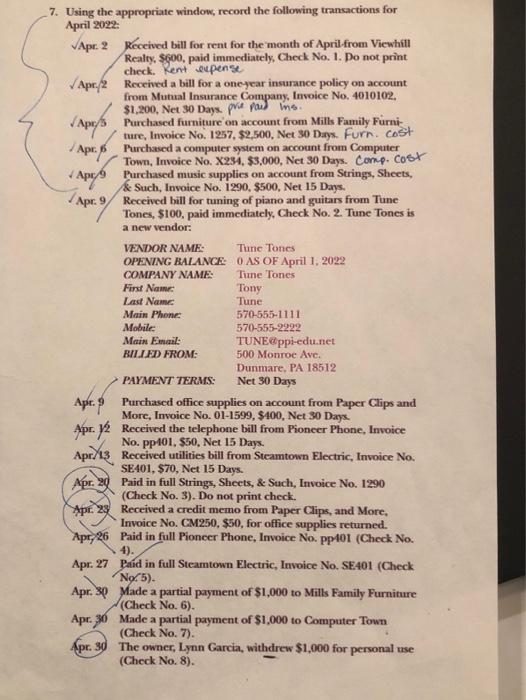 7. Using the appropriate window, record the following transactions for
April 2022:
✓Apr. 2 Received bill for rent for the month of April from Viewhill
Realty, $600, paid immediately, Check No. 1. Do not print
check. Rent expense
✓Apr. 2 Received a bill for a one-year insurance policy on account
from Mutual Insurance Company, Invoice No. 4010102,
$1,200, Net 30 Days. pre paid Ins.
✓Apr. 5 Purchased furniture on account from Mills Family Furni-
ture, Invoice No. 1257, $2,500, Net 30 Days. Furn. cost
✓Apr. 6 Purchased a computer system on account from Computer
Town, Invoice No. X234, $3,000, Net 30 Days. Comp. cost
✓Apr. 9 Purchased music supplies on account from Strings, Sheets,
& Such, Invoice No. 1290, $500, Net 15 Days.
✓Apr. 9 Received bill for tuning of piano and guitars from Tune
Tones, $100, paid immediately, Check No. 2. Tune Tones is
a new vendor:
VENDOR NAME: Tune Tones
OPENING BALANCE: 0 AS OF April 1, 2022
COMPANY NAME: Tune Tones
First Name: Tony
Last Name: Tune
Main Phone: 570-555-1111
Mobile: 570-555-2222
Main Email: TUNE@ppi-edu.net
BILLED FROM: 500 Monroe Ave.
Dunmare, PA 18512
PAYMENT TERMS: Net 30 Days
Apr. 9 Purchased office supplies on account from Paper Clips and
More, Invoice No. 01-1599, $400, Net 30 Days.
Apr. 12 Received the telephone bill from Pioneer Phone, Invoice
No. pp401, $50, Net 15 Days.
Apr. 13 Received utilities bill from Steamtown Electric, Invoice No.
SE401, $70, Net 15 Days.
Apr. 20 Paid in full Strings, Sheets, & Such, Invoice No. 1290
(Check No. 3). Do not print check.
Apr. 23 Received a credit memo from Paper Clips, and More,
Invoice No. CM250, $50, for office supplies returned.
Apr. 26 Paid in full Pioneer Phone, Invoice No. pp401 (Check No.
4).
Apr. 27 Paid in full Steamtown Electric, Invoice No. SE401 (Check
No. 5).
Apr. 30 Made a partial payment of $1,000 to Mills Family Furniture
(Check No. 6).
Apr. 30 Made a partial payment of $1,000 to Computer Town
(Check No. 7).
Apr. 30 The owner, Lynn Garcia, withdrew $1,000 for personal use
(Check No. 8).